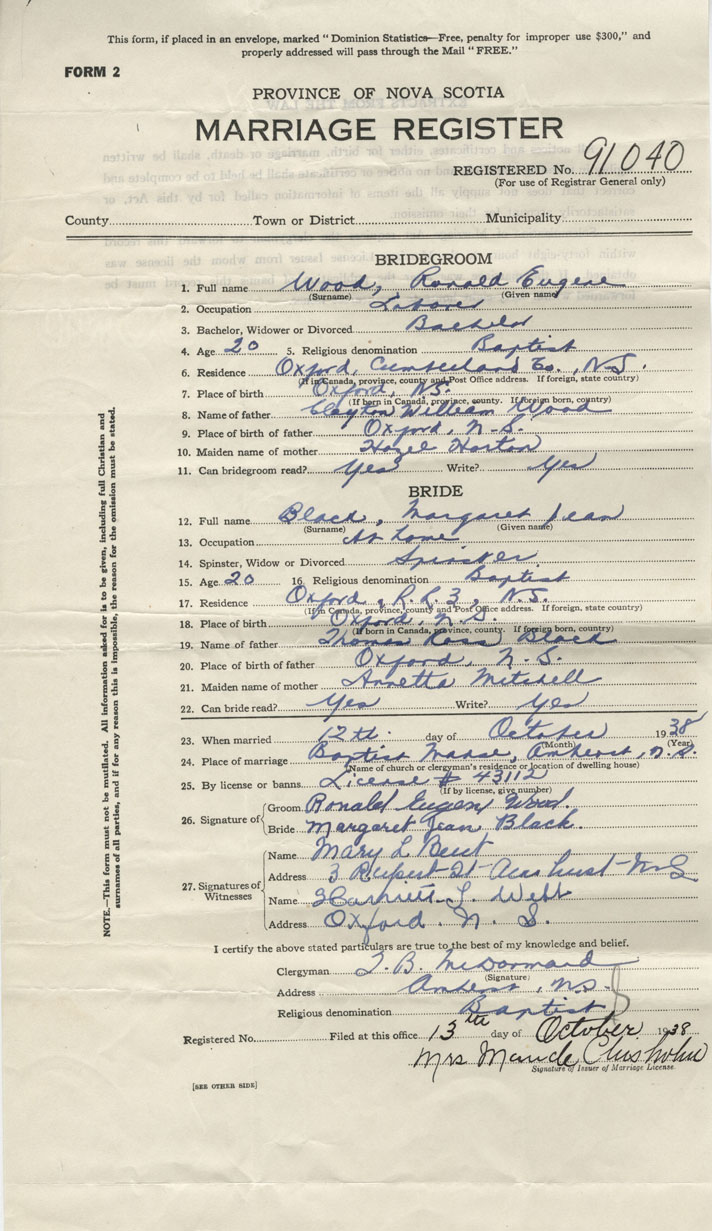 This form, if placed in an envelope, marked "Dominion Statistics—Free, penalty for improper use $300," and
properly addressed will pass through the Mail "FREE."
FORM 2
PROVINCE OF NOVA SCOTIA
MARRIAGE REGISTER
REGISTERED No. 91040
(For use of Registrar General only)
County Town or District Municipality
BRIDEGROOM
1. Full name Wood, Ronald Eugene
(Surname) (Given name)
2. Occupation Laborer
3. Bachelor, Widower or Divorced Bachelor
4. Age 20 5. Religious denomination Baptist
6. Residence Oxford, Cumberland Co., N.S.
(If in Canada, province, county and Post Office address. If foreign, state country)
7. Place of birth Oxford, N.S.
(If born in Canada, province, county. If foreign born, country)
8. Name of father Clayton William Wood
9. Place of birth of father Oxford, N.S.
10. Maiden name of mother Hazel Horton
11. Can bridegroom read? Yes Write? Yes
BRIDE
12. Full name Black, Margaret Jean
(Surname) (Given name)
13. Occupation At home
14. Spinster, Widow or Divorced Spinster
15. Age 20 16. Religious denomination Baptist
17. Residence Oxford, R.R.3, N.S.
(If in Canada, province, county and Post Office address. If foreign, state country)
18. Place of birth Oxford, N.S.
(If born in Canada, province, county. If foreign born, country)
19. Name of father Thomas Ross Black
20. Place of birth of father Oxford, N.S.
21. Maiden name of mother Annetta Mitchell
22. Can bride read? Yes Write? Yes
23. When married 12th day of October 1938
(Month) (Year)
24. Place of marriage Baptist Manse, Amherst, N.S.
(Name of church or clergyman's residence or location of dwelling house)
25. By license or banns License # 43112
(If by license, give number)
26. Signature of Groom Ronald Eugene Wood.
Bride Margaret Jean Black.
27. Signatures of Witnesses
Name Mary L
Address 3 Rupert St Amherst N.S
Name Harriett L. Webb
Address Oxford. N. S.
I certify the above stated particulars are true to the best of my knowledge and belief.
Clergyman McDormand
(Signature)
Address Amherst, N.S.
Religious denomination Baptist
Registered No. Filed at this office 13th day of October 1938
Mrs Maude Chisholm
Signature of Issuer of Marriage License.
[SEE OTHER SIDE]
NOTE.—This form must not be mutilated. All information asked for is to be given, including full Christian and
surnames of all parties, and if for any reason this is impossible, the reason for the omission must be stated.